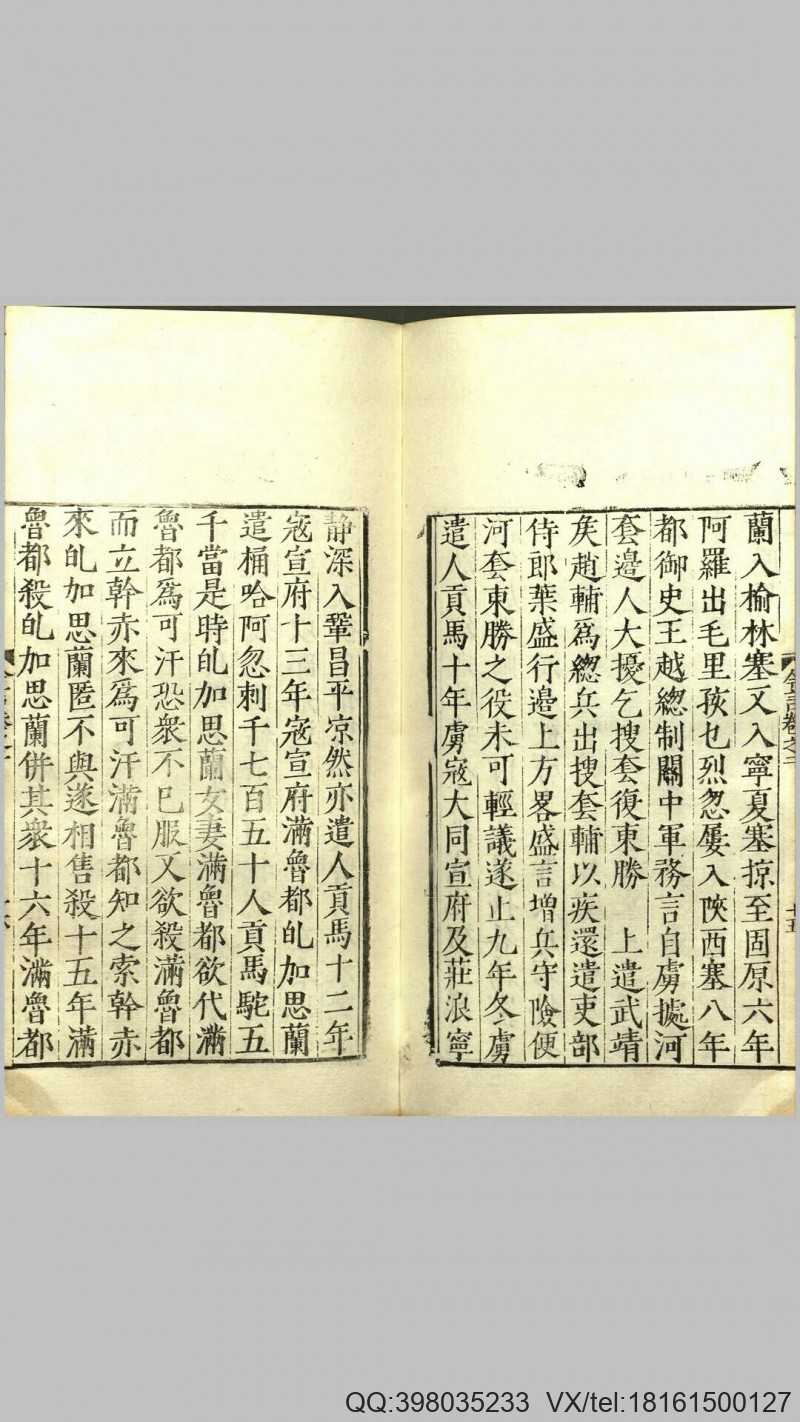 蘭入榆林塞又入寧夏塞掠至固原六年
阿羅出毛里孩乜烈忽屢入陝西塞八年
都御史王越總制關中軍務言自虜據河
套邊人大擾乞搜套復東勝　上遣武靖
矦趙輔爲總兵出搜套輔以疾還遣吏部
侍郎葉盛行邉上方畧盛言增兵守險便
河套東勝之役未可輕議遂止九年冬虜
遣人貢馬十年虜寇大同宣府及莊浪寧
靜深入鞏昌平凉然亦遣人貢馬十二年
寇宣府十三年寇宣府滿魯都癿加思蘭
遣桶哈阿忽剌千七百五十人貢馬駝五
千當是時癿加思蘭女妻滿魯都欲代滿
魯都爲可汗恐衆不巳服又欲殺滿魯都
而立斡赤來爲可汗滿魯都知之索斡赤
來癿加思蘭匿不與遂相售殺十五年滿
魯都殺癿加思蘭併其衆十六年滿魯都
QQ:398035233 VX/tel:18161500127